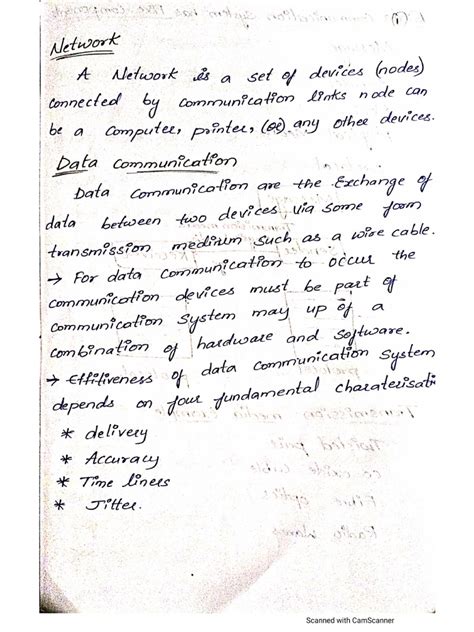 Network
A Network is a set of devices (nodes)
connected by communication links node can
be a computer, printer, (or) any other devices.
Data communication
Data communication are the Exchange of
data between two devices, Via some form
transmission medium such as a wire cable.
→ For data communication to occur the
communication devices must be part of
communication system may up of a
combination of hardware and software.
→ Effitiveness of data communication system
depends on four fundamental charaterisati
* delivery
* Accuracy
* Time liners
* Jitter.
Scanned with CamScanner